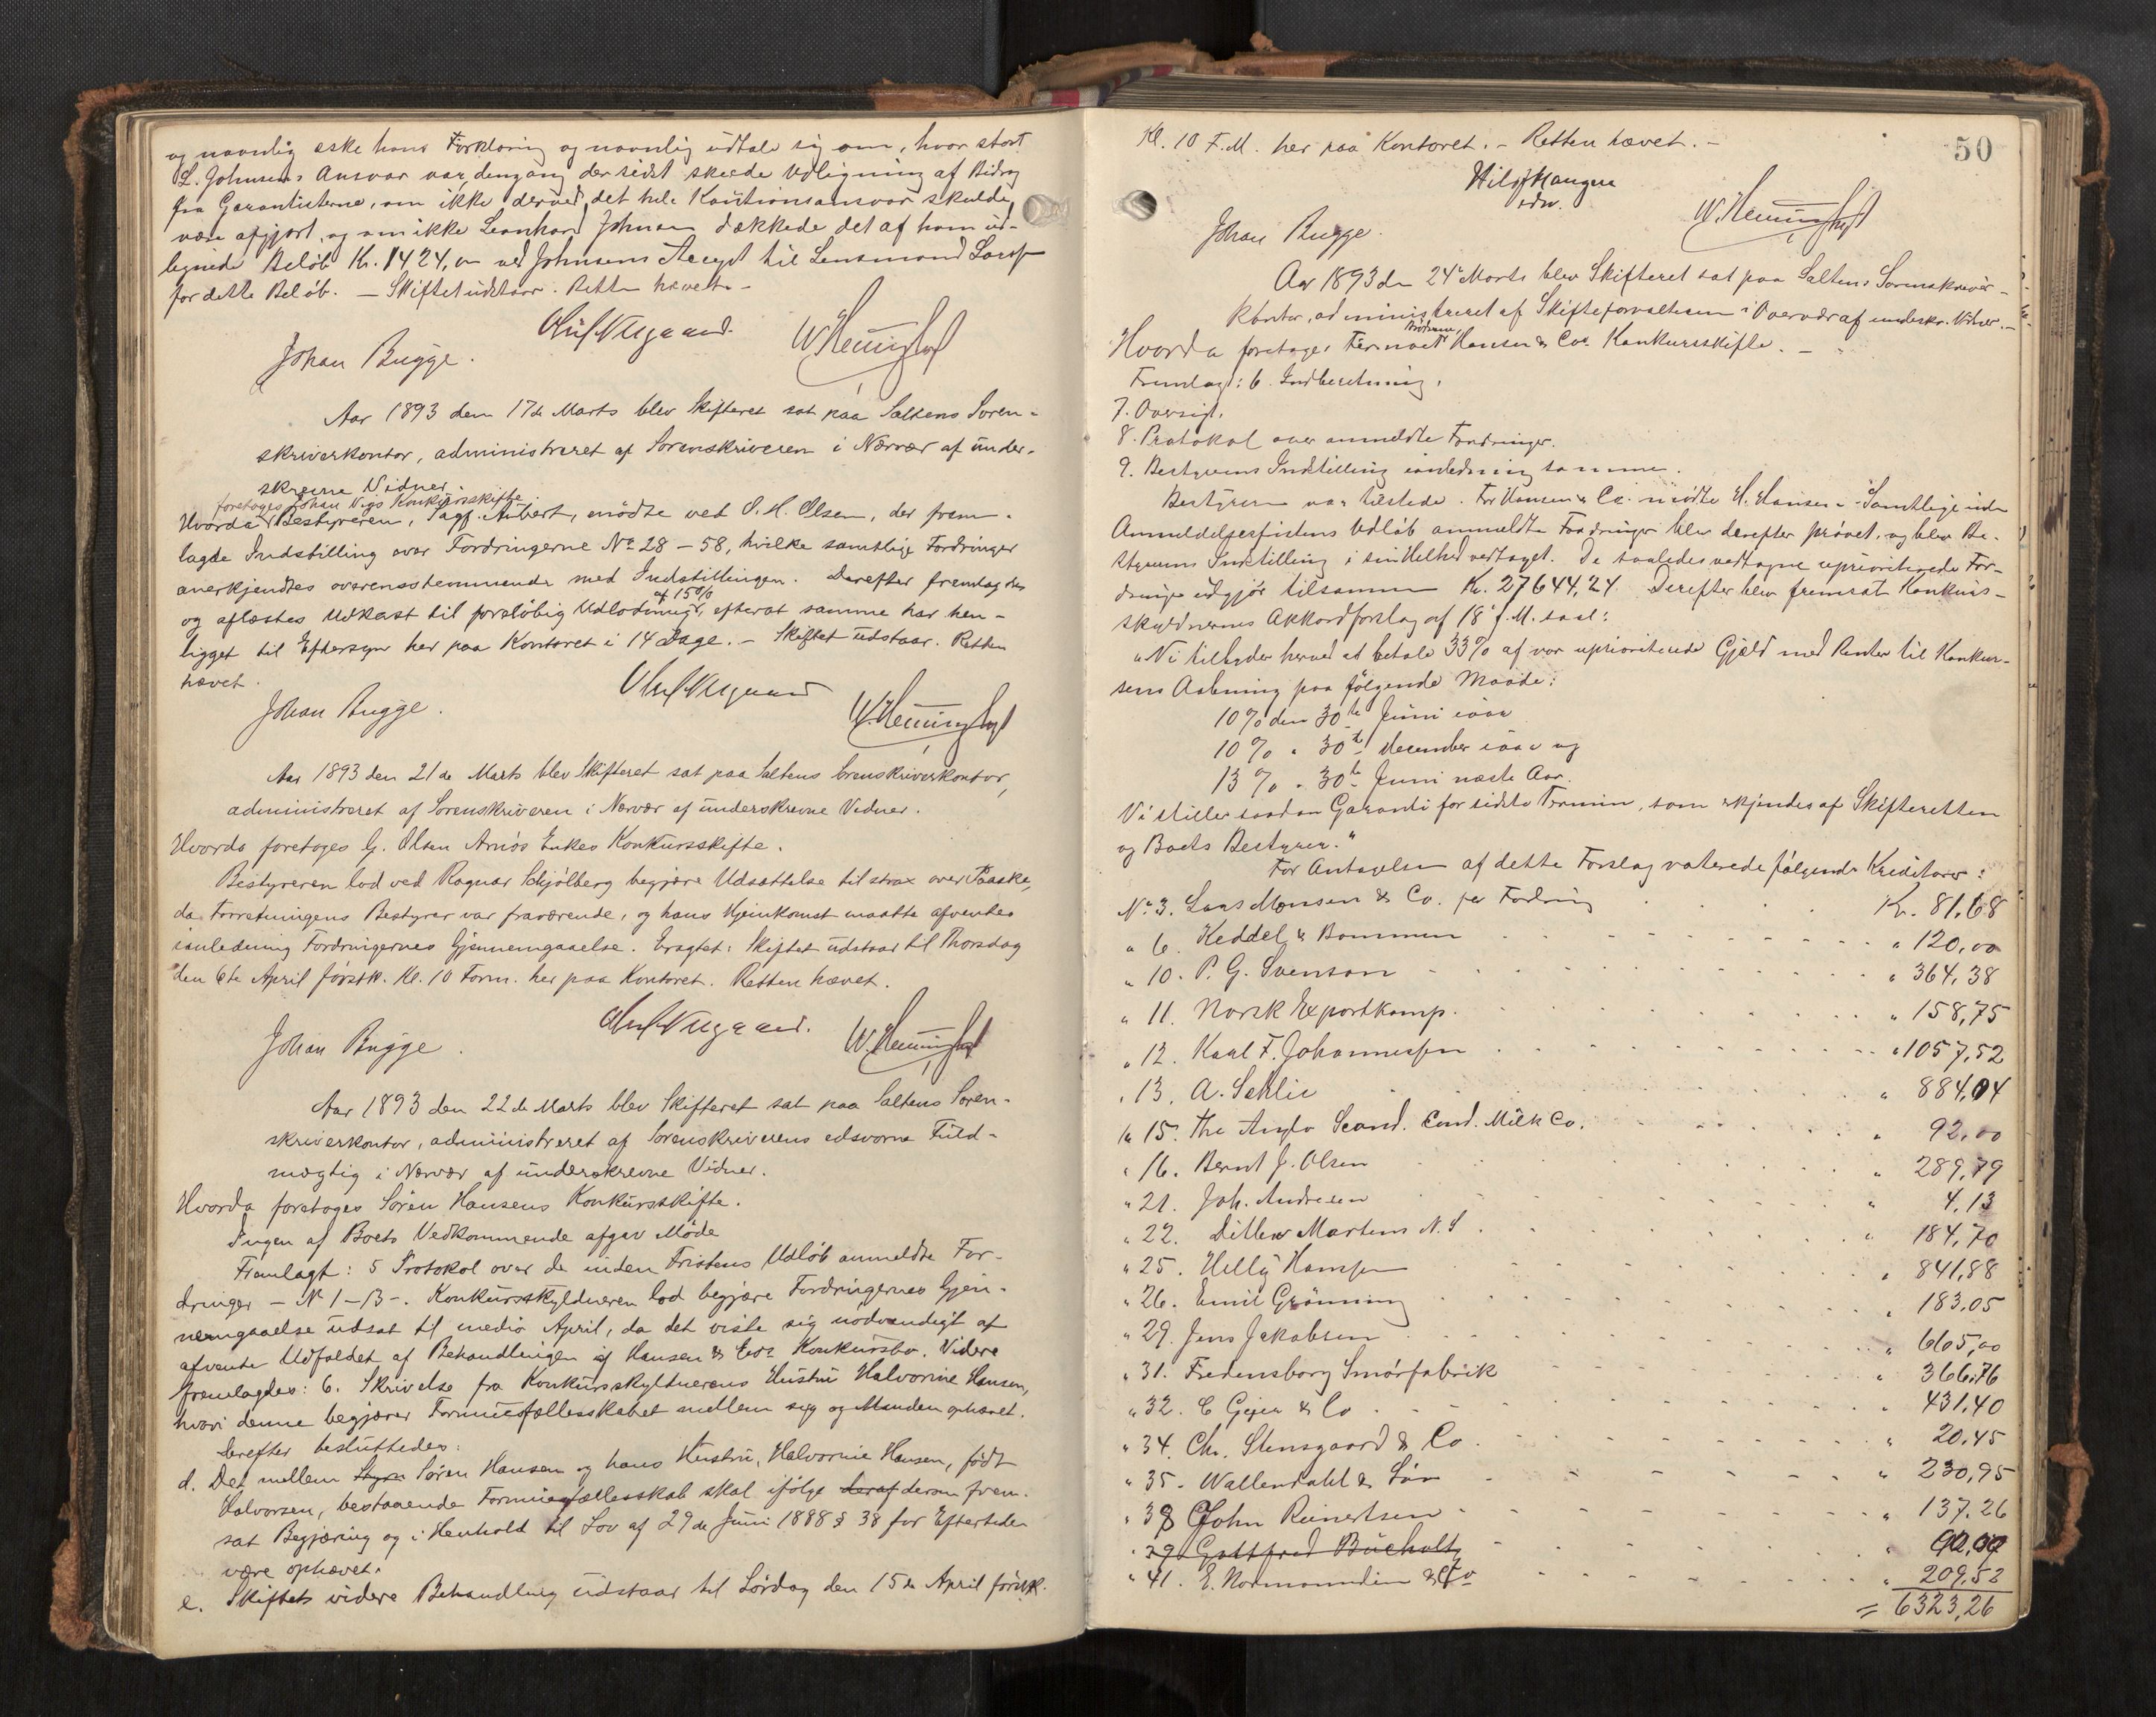 og navnlig æske hans Forklaring og navnlig udtale sig om, hvor stort
L. Johnsens Ansvar var, dengang der sidst skeede Udligning af Bidrag
fra Garantisterne, om ikke derved det hele Kautionsansvar skulde
være afgjort, og om ikke Leonhard Johnsen dækkede det af ham ud-
lignede Beløb Kr. 1424, ved Johnsens Accept til Lensmand
for dette Beløb. — Skiftet udstaar. Retten hævet. -
Johan Bugge.
Aar 1893 den 17de Marts blev Skifteret sat paa Saltens Soren-
skriverkontor, administreret af Sorenskriveren i Nærvær af under-
skrevne Vidner.
foretoges Johan Nigs Konkursskifte.
Hvorda Bestyreren, Sagf. Aubert, mødte ved O. H. Olsen, der frem-
lagde Indstilling over Fordringerne No 28 – 58, hvilke samtlige Fordringer
anerkjendtes overensstemmende med Indstillingen. Derefter fremlagdes
af 15%
og aflæstes Udkast til foreløbig Udlodning, efterat samme har hen-
ligget til Eftersyn her paa Kontoret i 14 Dage. – Skiftet udstaar. Retten
hævet.
Johan Bugge.
Aar 1893 den 21de Marts blev Skifteret sat paa Saltens Sorenskriverkontor,
administreret af Sorenskriveren i Nærvær af underskrevne Vidner.
Hvorda foretoges G. Olsen Arnøs Enkes Konkursskifte.
Bestyreren lod ved Ragnar Schjølberg begjære Udsættelse til strax over Paaske,
da Forretningens Bestyrer var fraværende, og hans Hjemkomst maatte afventes
ianledning Fordringernes Gjennemgaaelse. Eragtet: Skiftet udstaar til Thorsdag
den 6te April førstk. Kl. 10 Form. her paa Kontoret. Retten hævet.
Johan Bugge.
Aar 1893 den 22de Marts blev Skifteret sat paa Saltens Soren-
skriverkontor, administreret af Sorenskriverens edsvorne Fuld-
mægtig i Nærvær af underskrevne Vidner.
Hvorda foretoges Søren Hansens Konkursskifte.
Ingen af Boets Vedkommende afgav Møde
Fremlagt: 5 Protokol over de inden Fristens Udløb anmeldte For-
dringer – No 1–13 –. Konkursskyldneren lod begjære Fordringernes Gjen-
nemgaaelse udsat til medio April, da det viste sig nødvendigt at
afvente Udfaldet af Behandlingen af Hansen & Cos Konkursbo. Videre
fremlagdes: 6. Skrivelse fra Konkursskyldnerens Hustru Halvorine Hansen,
hvori denne begjærer Formuesfællesskabet mellem sig og Manden ophævet.
Derefter besluttedes:
d. Det mellem Søren Hansen og hans Hustru, Halvorine Hansen, født
Halvorsen, bestaaende Formuesfællesskab skal ifølge deraf derom frem-
sat Begjæring og i Henhold til Lov af 29de Juni 1888 § 38 for Eftertiden
være ophævet.
e. Skiftets videre Behandling udstaar til Lørdag den 15de April førstk.
50
Kl. 10 F.M. her paa Kontoret. – Retten hævet. –
edsv.
Johan Bugge.
Aar 1893 den 24de Marts blev Skifteret sat paa Saltens Sorenskriver-
kontor, administreret af Skifteforvalteren i Overvær af underskr. Vidner. –
Brødrene
Hvorda foretoges Firmaet Hansen & Cos Konkursskifte. –
Fremlagt: 6. Indberetning.
7. Oversigt.
8. Protokol over anmeldte Fordringer.
9. Bestyrerens Indstilling ianledning samme.
Bestyreren var tilstede. For Hansen & Co. mødte H. Hansen. – Samtlige inden
Anmeldelsesfristens Udløb anmeldte Fordringer blev derefter prøvet, og blev Be-
styrerens Indstilling i sin Helhed vedtaget. De saaledes vedtagne uprioriterede For-
dringer udgjør tilsammen Kr. 27644,24. Derefter blev fremsat Konkurs-
skyldnernes Akkordforslag af 18de f. M. saal:
"Vi tilbyder herved at betale 33% af vor uprioriterede Gjæld med Renter til Konkur-
sens Aabning paa følgende Maade:
10% den 30te Juni iaar
10% " 30te December iaar og
13% " 30te Juni næste Aar.
Vi stiller saadan Garanti for sidste Termin, som erkjendes af Skifteretten
og Boets Bestyrer."
For Antagelsen af dette Forslag voterede følgende Kreditorer:
No 3. Lars Monsen & Co. for Fordring Kr. 81,68
" 6. Keddel & Bommen " 120,00
" 10. P. G. Svenson " 364,38
" 11. Norsk Exportkomp. " 158,75
" 12. Karl F. Johannessen " 1057,52
" 13. A. Schlie " 884,04
" 15. The Anglo Scand. Cond. Milk Co. " 92,00
" 16. Bernt J. Olsen " 289,79
" 21. Joh. Andresen " 4,13
" 22. Ditlev Martens N. S. " 184,70
" 25. Helly Hansen " 841,88
" 26. Emil Grønning " 183,05
" 29. Jens Jakobsen " 605,00
" 31. Fredensborg Smørfabrik " 366,76
" 32. C Geijer & Co " 431,40
" 34. Chr. Stensgaard & Co. " 20,45
" 35. Wallendahl & Søn " 230,95
" 38 John Reinertsen " 137,26
" 39 Gottfred Bucholtz
" 41. E. Normanndin & Co " 209,52
= 6323,26